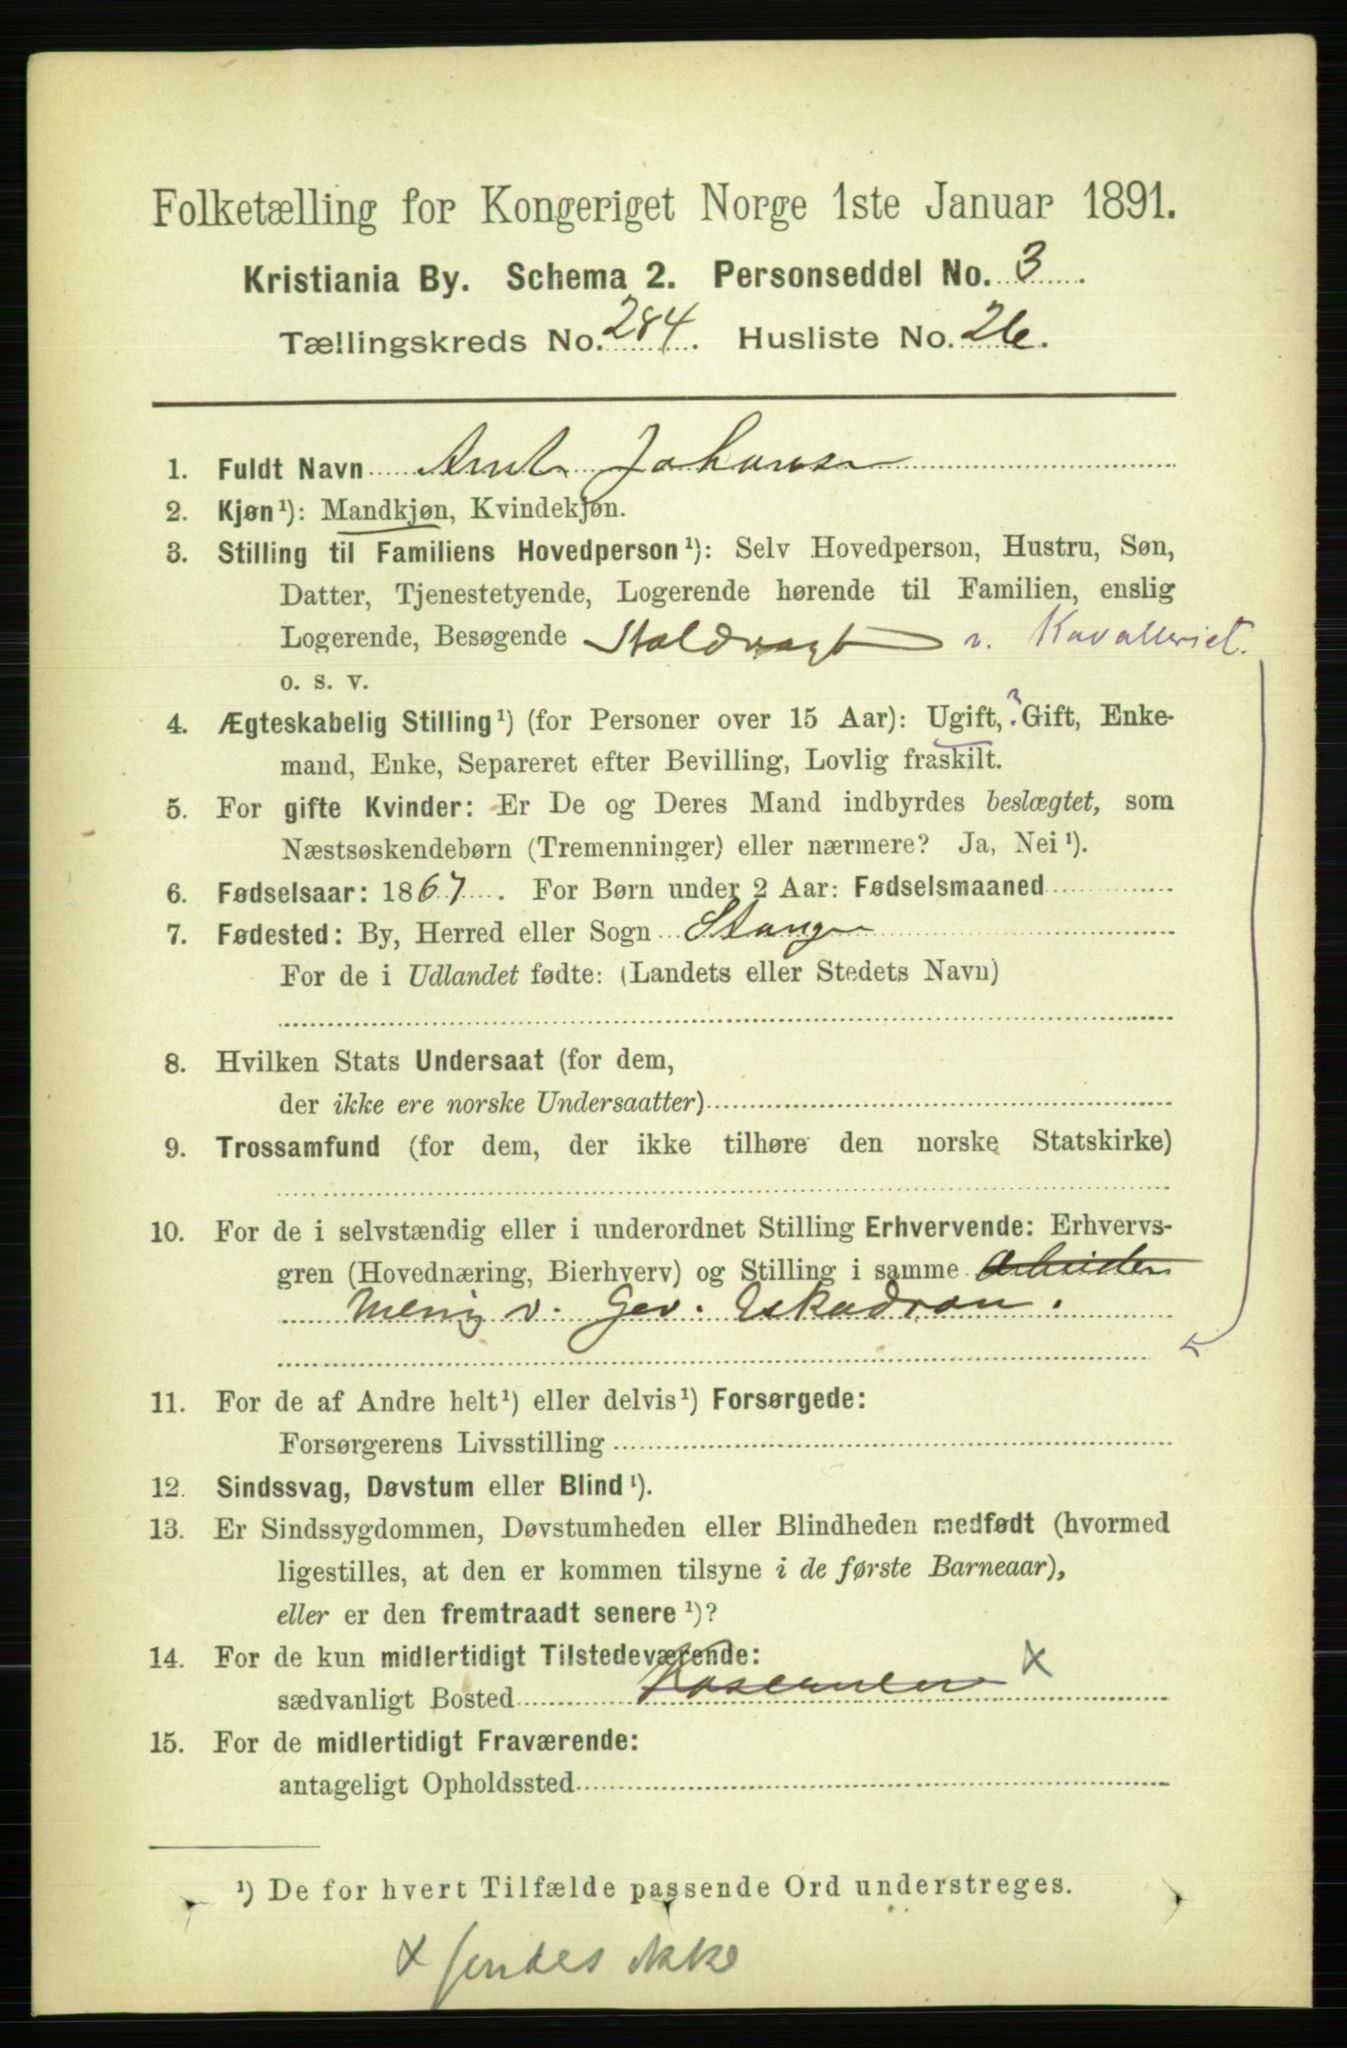 Folketælling for Kongeriget Norge 1ste Januar 1891.
Kristiania By. Schema 2. Personseddel No. 3
Tællingskreds No. 284. Husliste No. 26.
1. Fuldt Navn Arnt Johansen
2. Kjøn¹): Mandkjøn, Kvindekjøn.
3. Stilling til Familiens Hovedperson¹): Selv Hovedperson, Hustru, Søn,
Datter, Tjenestetyende, Logerende hørende til Familien, enslig
Logerende, Besøgende Staldvagt v. Kavalleriet.
o. s. v.
4. Ægteskabelig Stilling¹) (for Personer over 15 Aar): Ugift,? Gift, Enke-
mand, Enke, Separeret efter Bevilling, Lovlig fraskilt.
5. For gifte Kvinder: Er De og Deres Mand indbyrdes beslægtet, som
Næstsøskendebørn (Tremenninger) eller nærmere? Ja, Nei¹).
6. Fødselsaar: 1867. For Børn under 2 Aar: Fødselsmaaned
7. Fødested: By, Herred eller Sogn Stange
For de i Udlandet fødte: (Landets eller Stedets Navn)
8. Hvilken Stats Undersaat (for dem,
der ikke ere norske Undersaatter)
9. Trossamfund (for dem, der ikke tilhøre den norske Statskirke)
10. For de i selvstændig eller i underordnet Stilling Erhvervende: Erhvervs-
gren (Hovednæring, Bierhverv) og Stilling i samme Arbeider
Menig v. Gev. Eskadron.
11. For de af Andre helt¹) eller delvis¹) Forsørgede:
Forsørgerens Livsstilling
12. Sindssvag, Døvstum eller Blind¹).
13. Er Sindssygdommen, Døvstumheden eller Blindheden medfødt (hvormed
ligestilles, at den er kommen tilsyne i de første Barneaar),
eller er den fremtraadt senere¹)?
14. For de kun midlertidigt Tilstedeværende:
sædvanligt Bosted Kasernen x
15. For de midlertidigt Fraværende:
antageligt Opholdssted
¹) De for hvert Tilfælde passende Ord understreges.
x findes ikke